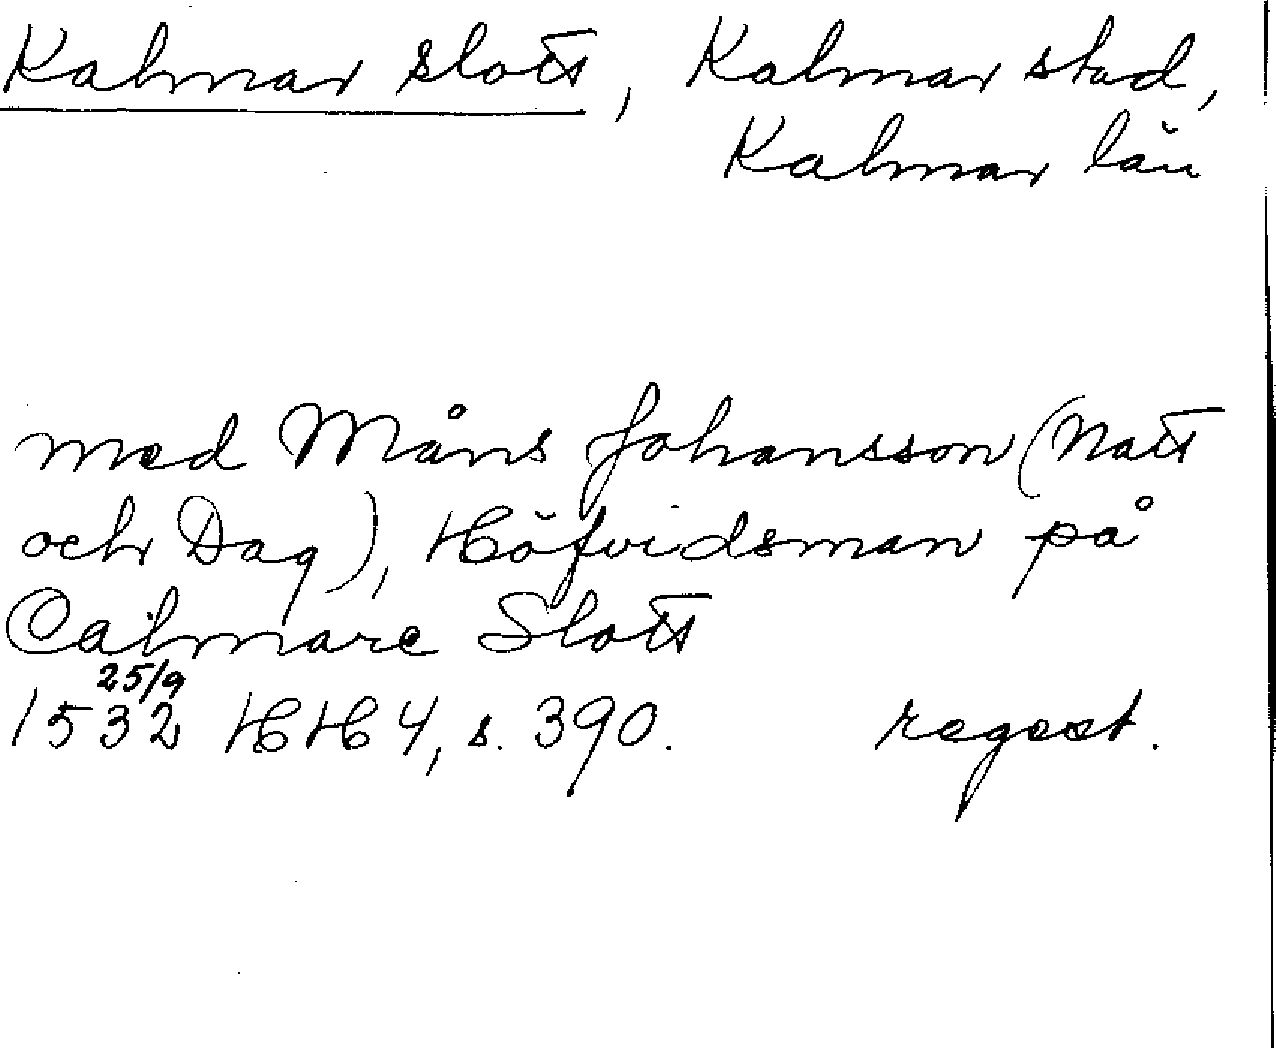 Kalmar slott, Kalmar stad,
Kalmar län
med Måns Johansson (Natt
och Dag), Höfvidsman på
Calmare Slott
25/9
1532 HH 4, s. 390. regest.